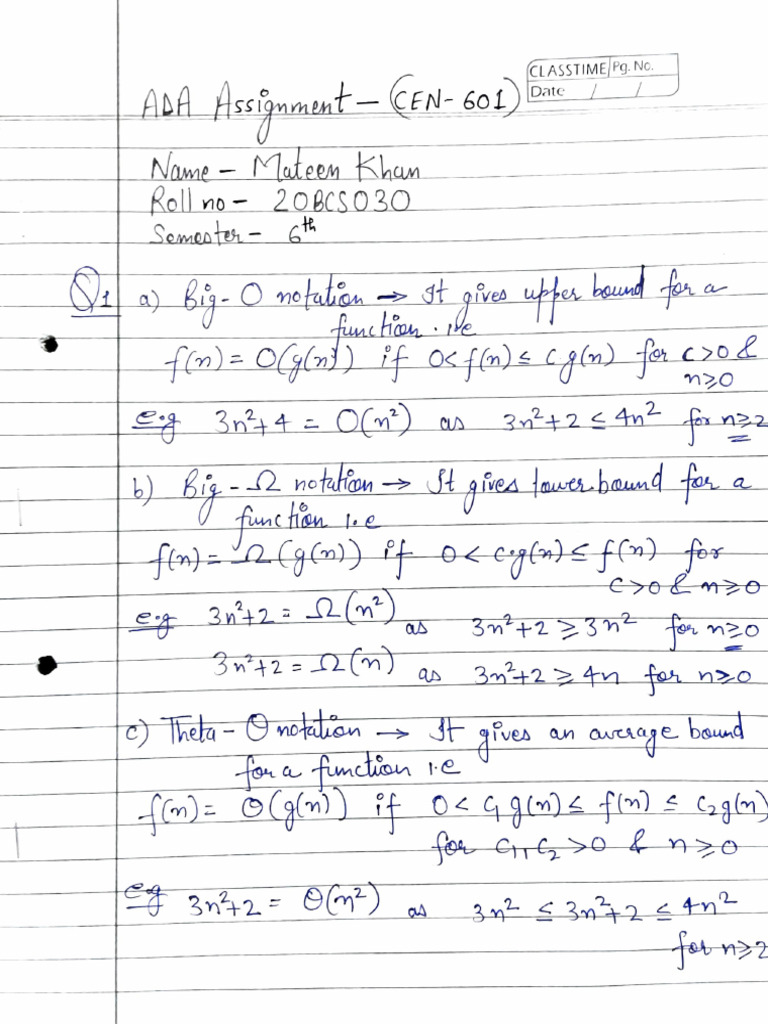 CLASSTIME Pg. No.
Date / /
ADA Assignment - (CEN-601)
Name - Mateen Khan
Roll no - 20BCS030
Semester - 6th
Q1 a) Big-O notation → It gives upper bound for a
function. i.e
f(n) = O(g(n)) if 0< f(n) ≤ c g(n) for c>0 &
n≥0
e.g 3n²+4 = O(n²) as 3n²+2 ≤ 4n² for n≥2
b) Big-Ω notation → It gives lower bound for a
function i.e
f(n) = Ω(g(n)) if 0< c.g(n) ≤ f(n) for
c>0 & n≥0
e.g 3n²+2 = Ω(n²) as 3n²+2 ≥ 3n² for n≥0
3n²+2 = Ω(n) as 3n²+2 ≥ 4n for n≥0
c) Theta-Θ notation → It gives an average bound
for a function i.e
f(n) = Θ(g(n)) if 0< c₁ g(n) ≤ f(n) ≤ c₂g(n)
for c₁, c₂ >0 & n≥0
e.g 3n²+2 = Θ(n²) as 3n² ≤ 3n²+2 ≤ 4n²
for n≥2